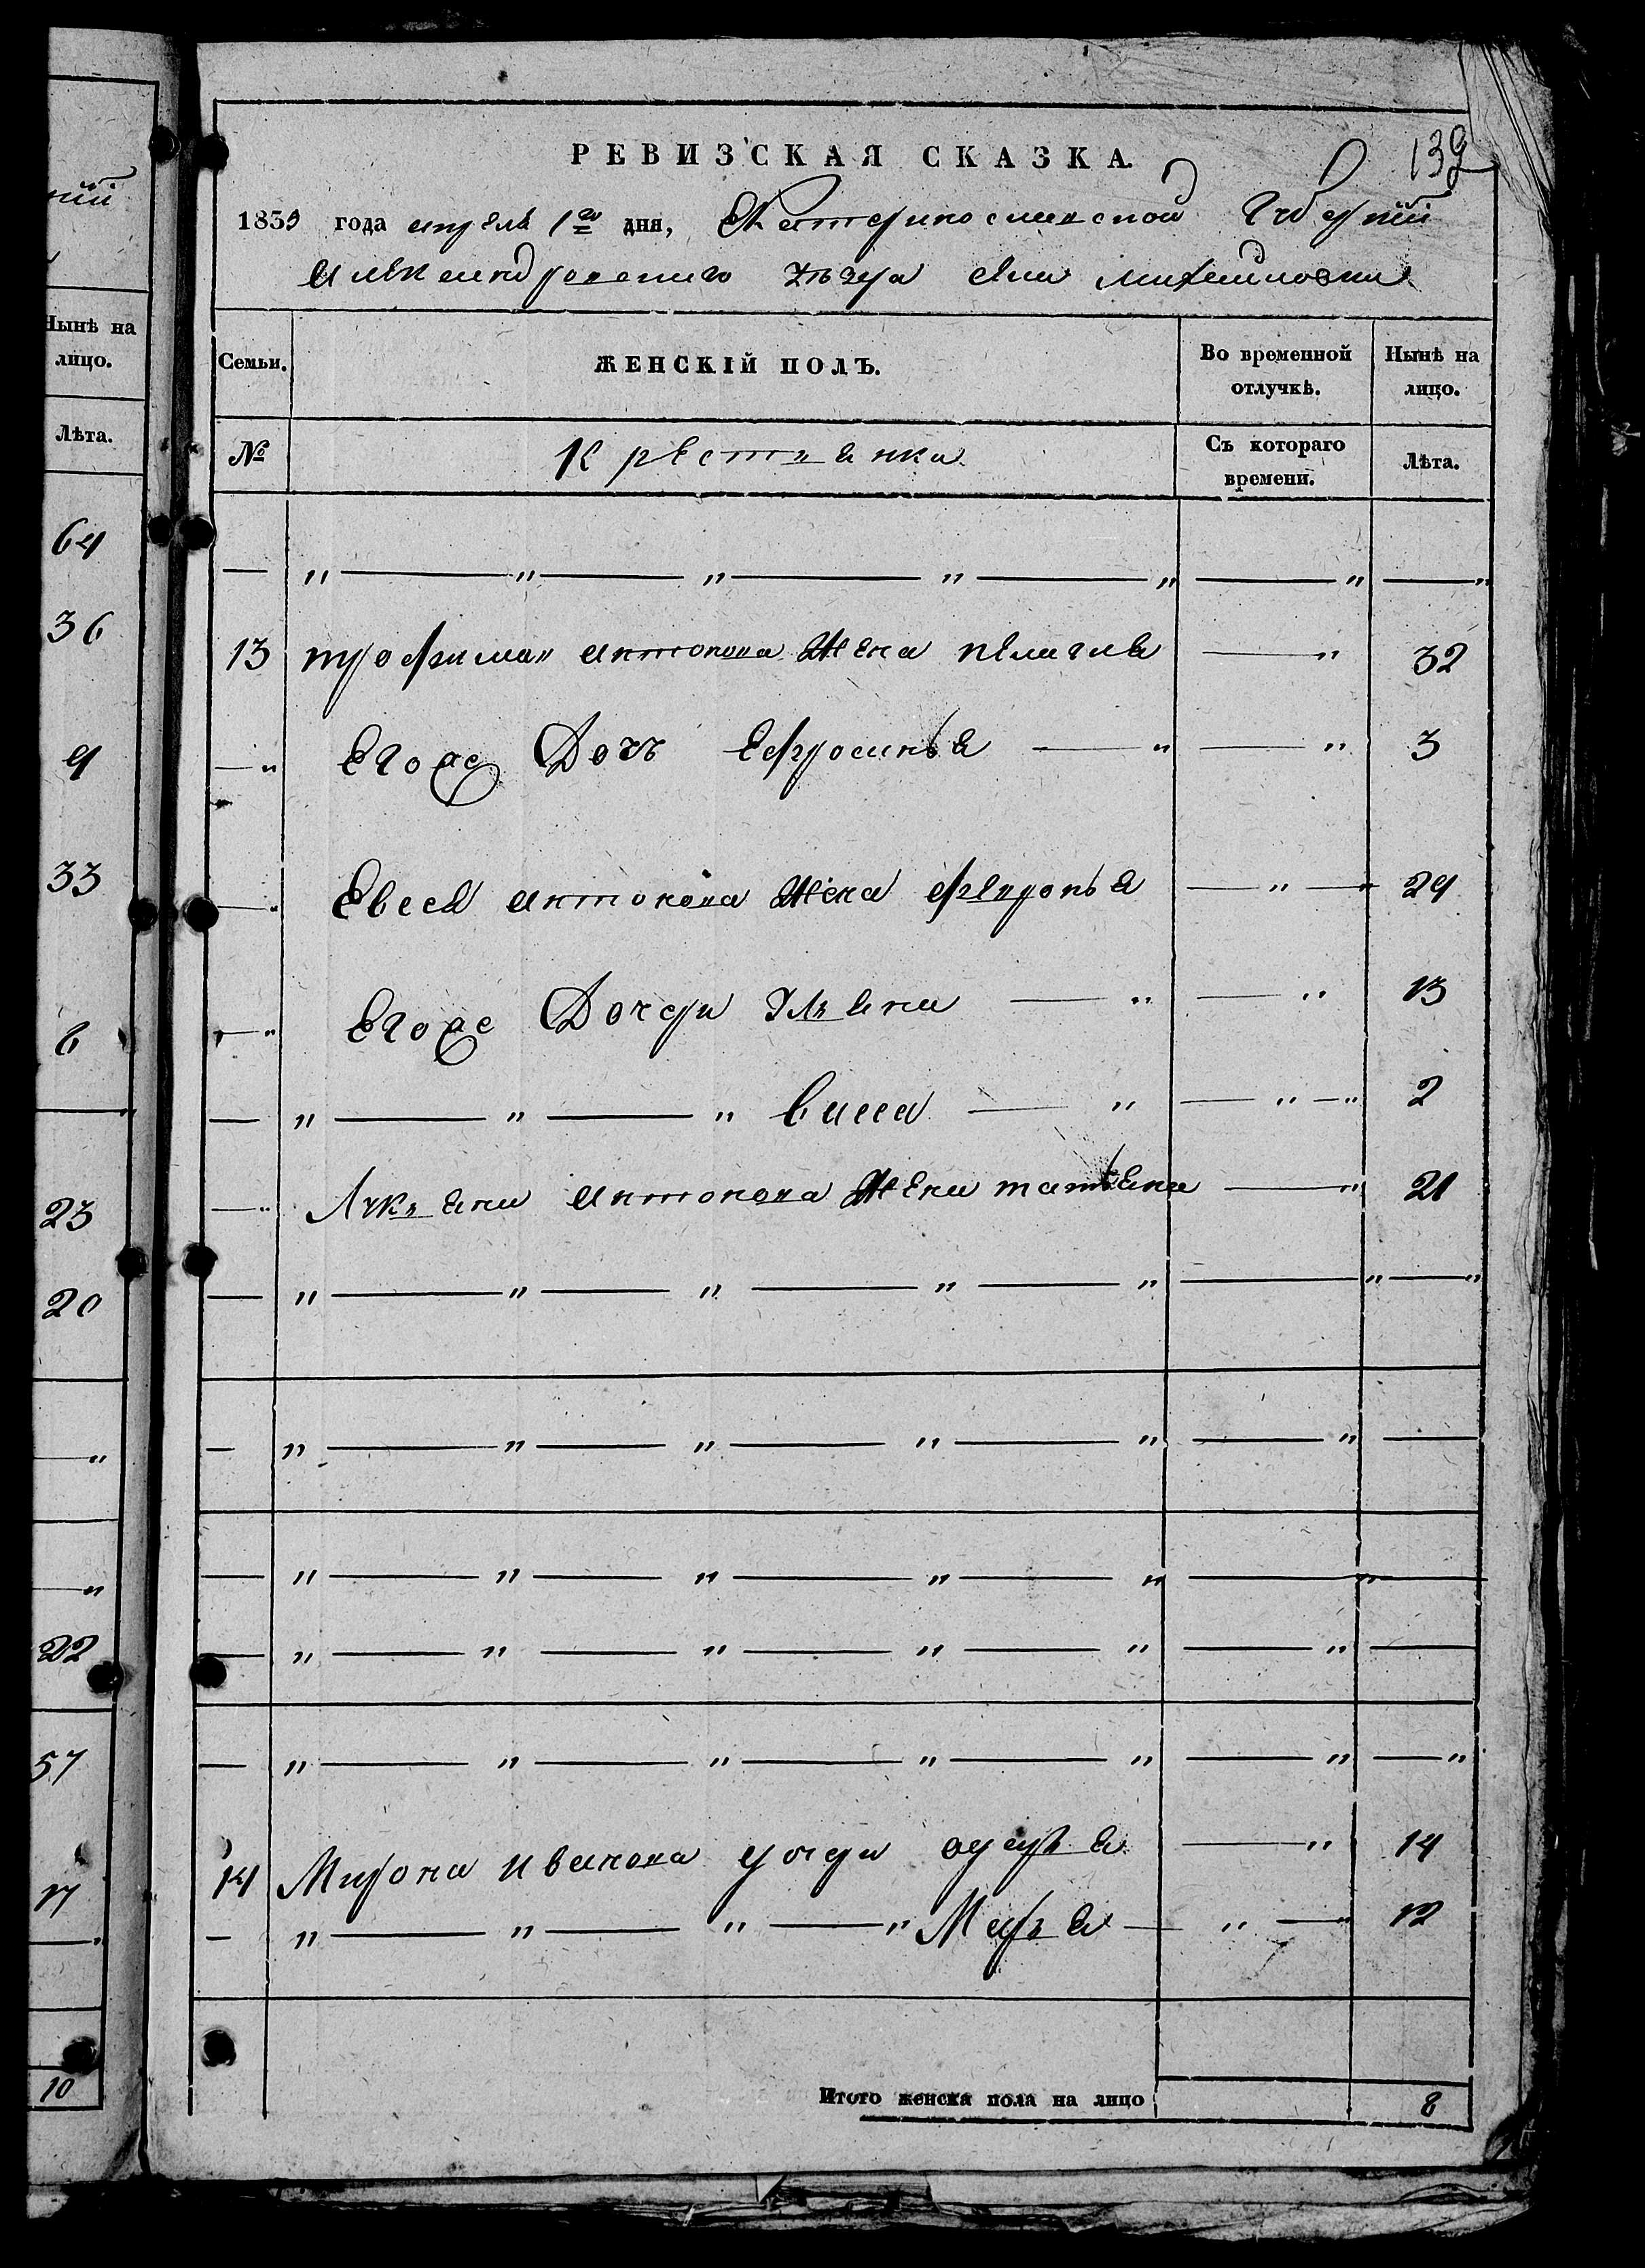 ній
Нынѣ на
лицо.
Лѣта.
64
36
9
33
6
23
20
22
57
17
10
139
РЕВИЗСКАЯ СКАЗКА.
1835 года апреля 1го дня, Екатеринославской Губерніи
Александровского уезда села михайловки
Семьи. ЖЕНСКІЙ ПОЛЪ. Во временной отлучкѣ. Нынѣ на лицо.
№ Крестьянки Съ котораго времени. Лѣта.
— „ — „ — „ — „ — „ — „ — „
13 трофима антонова жена пелагия — „ 32
— „ Егоже Дочь Ефросинья — „ — „ 3
— „ Евсея антонова жена февронья — „ — 29
— „ Егоже Дочери Ульяна — „ — „ 13
— „ — „ — „ васса — „ — „ — „ 2
— „ Лукьяна антонова жена татьяна — „ 21
— „ — „ — „ — „ — „ — „ — „
— „ — „ — „ — „ — „ — „ —
— „ — „ — „ — „ — „ — „ —
— „ — „ — „ — „ — „ — „ —
— „ — „ — „ — „ — „ — „ — „
14 Мирона иванова дочери дарья — „ 14
— „ — „ — „ — „ Марья — „ — „ 12
Итого женска пола на лицо 8